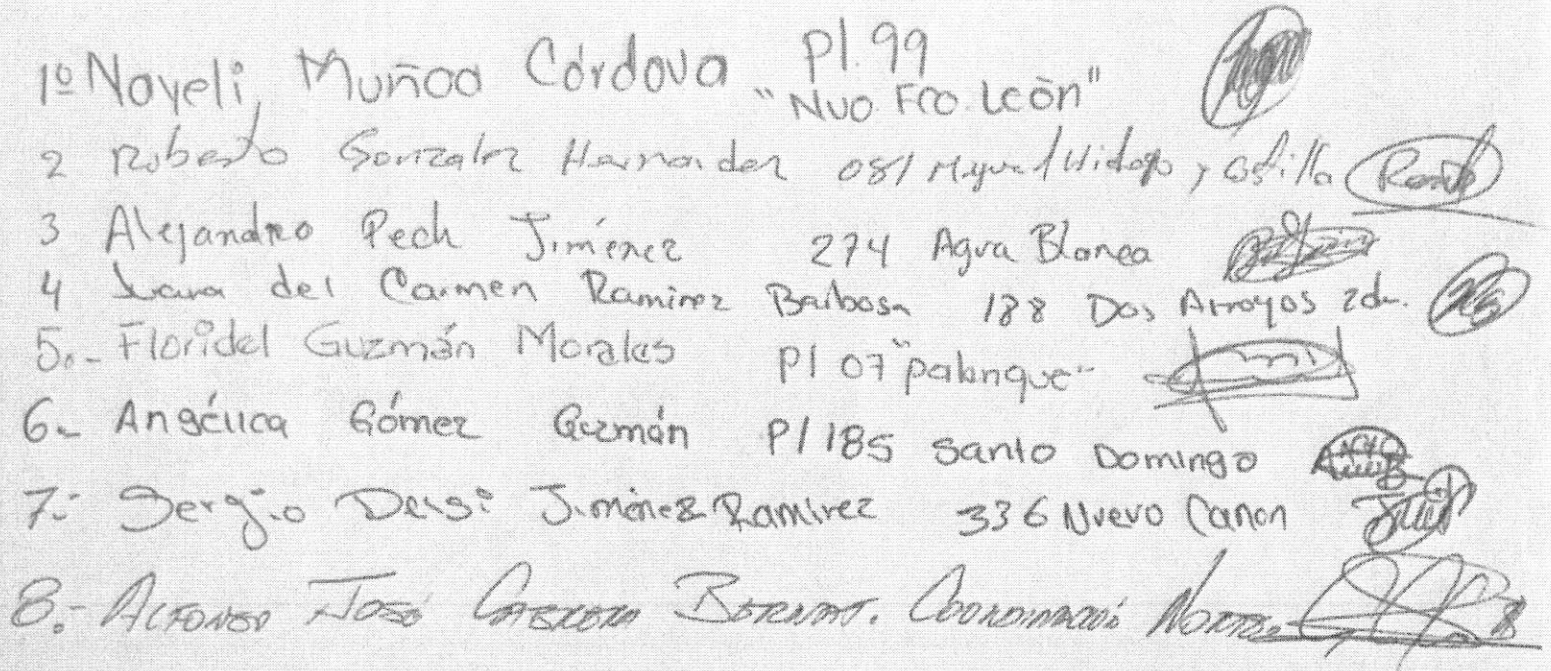 1º Nayeli Muñoa Córdova Pl. 99
"Nvo. Fco. León"
2 Roberto Gonzalez Hernandez 081 Miguel Hidalgo y Costilla
3 Alejandro Pech Jiménez 274 Agua Blanca
4 Juana del Carmen Ramirez Barbosa 188 Dos Arroyos 2da.
5.- Floridel Guzmán Morales Pl 07 "palenque"
6.- Angélica Gómez Guzmán Pl 185 Santo Domingo
7.- Sergio Jiménez Ramírez 336 Nuevo Canon
8.- Alfonso José Cabrera Bernat. Coordinación Norte